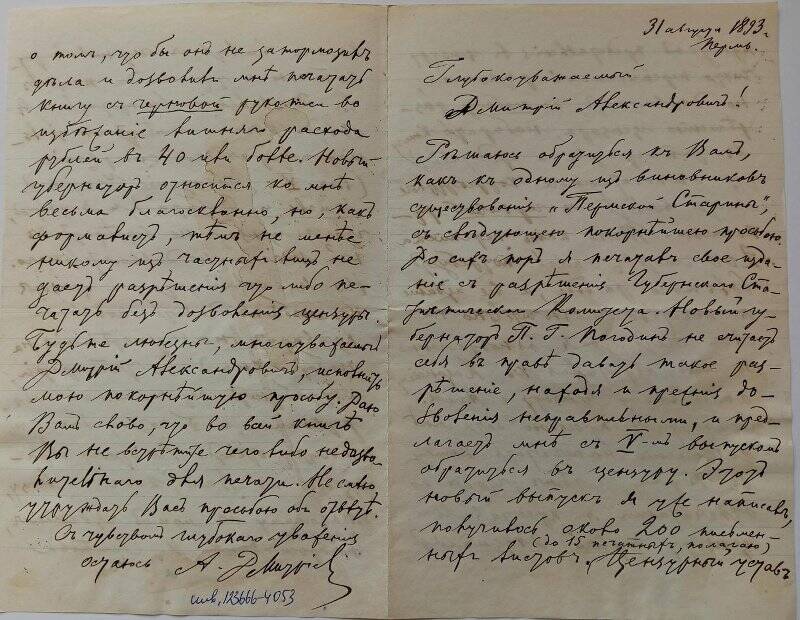 31 августа 1893 г.
Пермь.
Глубокоуважаемый
Дмитрій Александровичъ!
Рѣшаюсь обратиться къ Вамъ,
какъ къ одному изъ виновниковъ
существованія „Пермской Старины",
съ слѣдующею покорнѣйшею просьбою.
До сихъ поръ я печаталъ свое изда-
ніе съ разрѣшенія Губернскаго Ста-
тистическаго Комитета. Новый гу-
бернаторъ П. Г. Погодинъ не считаетъ
себя въ правѣ давать такое раз-
рѣшеніе, находя и прежнія до-
зволенія неправильными, и пред-
лагаетъ мнѣ съ V-мъ выпускомъ
обратиться въ цензуру. Этотъ
новый выпускъ я уже написалъ,
получилось около 200 письмен-
(до 15 печатныхъ, полагаю)
ныхъ листовъ. Цензурный уставъ
о томъ, что бы онъ не затормозилъ
дѣла и дозволилъ мнѣ печатать
книгу съ черновой рукописи во
избѣжаніе лишняго расхода
рублей въ 40 или болѣе. Новый
губернаторъ относится ко мнѣ
весьма благосклонно, но, какъ
формалистъ, тѣмъ не менѣе
никому изъ частныхъ лицъ не
даетъ разрѣшенія что либо пе-
чатать безъ дозволенія цензуры.
Будьте любезны, многоуважаемый
Дмитрій Александровичъ, исполнить
мою покорнѣйшую просьбу. Даю
Вамъ слово, что во всей книгѣ
Вы не встрѣтите чего либо недозво-
лительнаго для печати. Не смѣю
утруждать Васъ просьбою объ отвѣтѣ.
Съ чувствомъ глубокаго уваженія
остаюсь А. Дмитріевъ
инв. 123666-4053